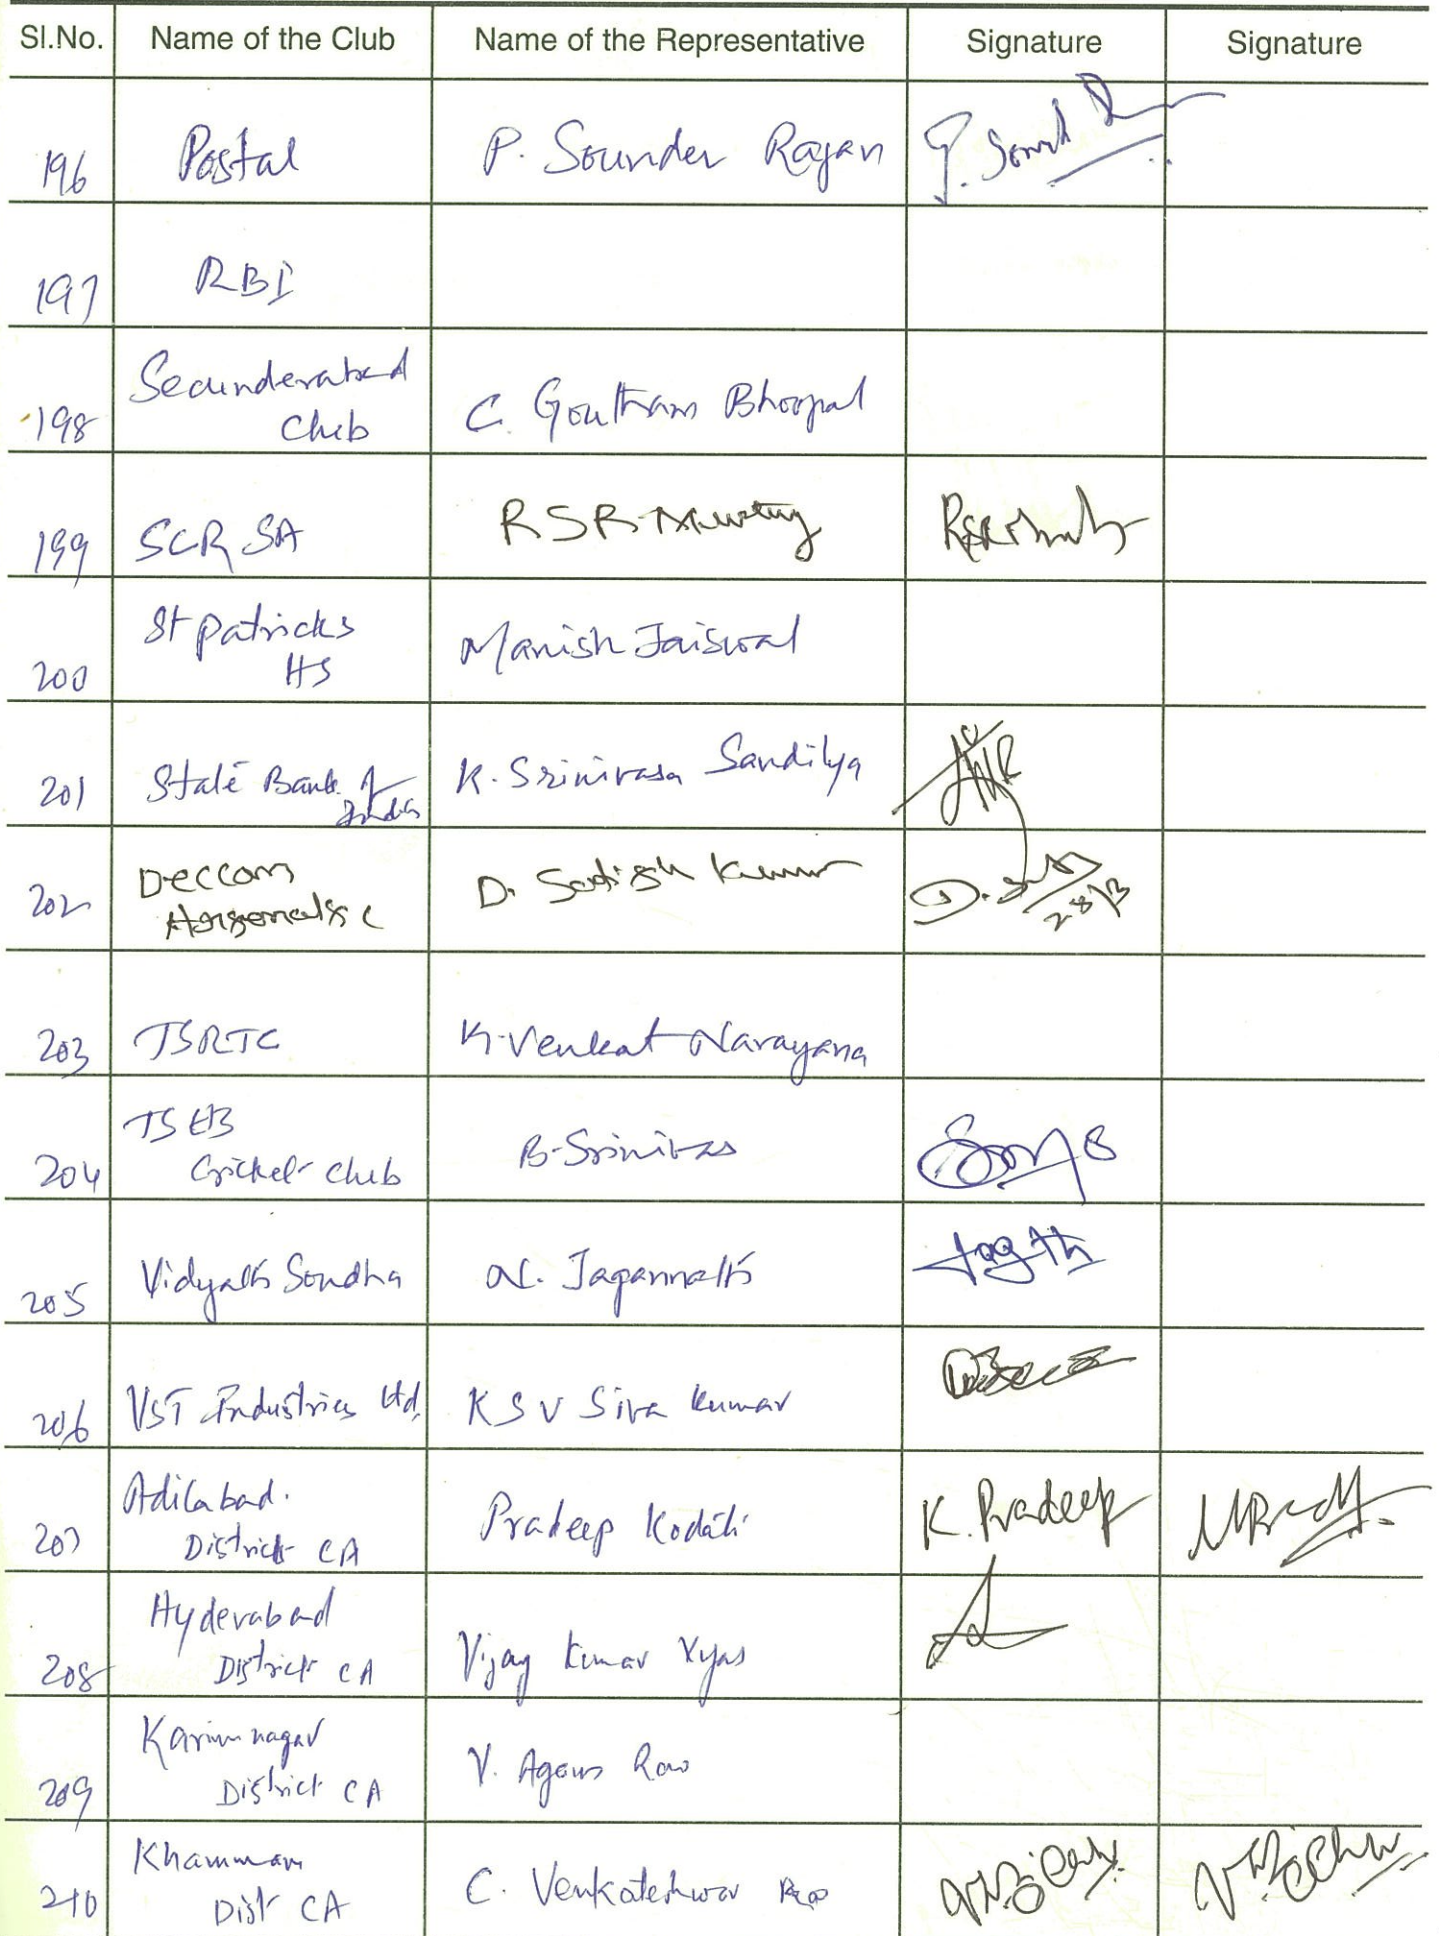 Sl.No. Name of the Club Name of the Representative Signature Signature
196 Postal P. Sounder Rajan
197 RBI
Secunderabad
198 Club C. Goutham Bhoopal
199 SCR SA RSR Murthy
St patricks
200 HS Manish Jaiswal
201 State Bank of K. Srinivasa Sandilya
India
Deccan
202 D. Satish Kumar
203 TSRTC K. Venkat Narayana
TSEB
204 Cricket Club B. Srinivas
205 Vidyath Soudha N. Jagannath
206 VST Industries Ltd. K S V Siva Kumar
Adilabad.
207 District CA Pradeep Kodati K. Pradeep
Hyderabad
208 District CA Vijay Kumar Vyas
Karimnagar
209 District CA V. Agam Rao
Khammam
210 Dist CA C. Venkateshwar Rao